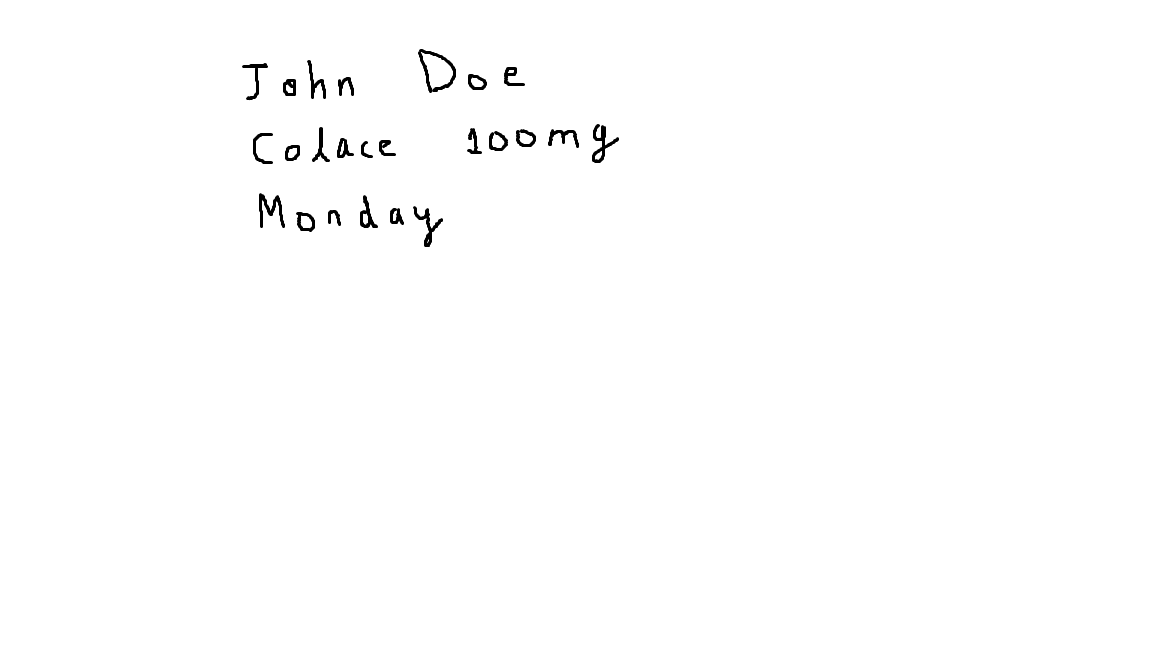 John Doe
Colace 100mg
Monday